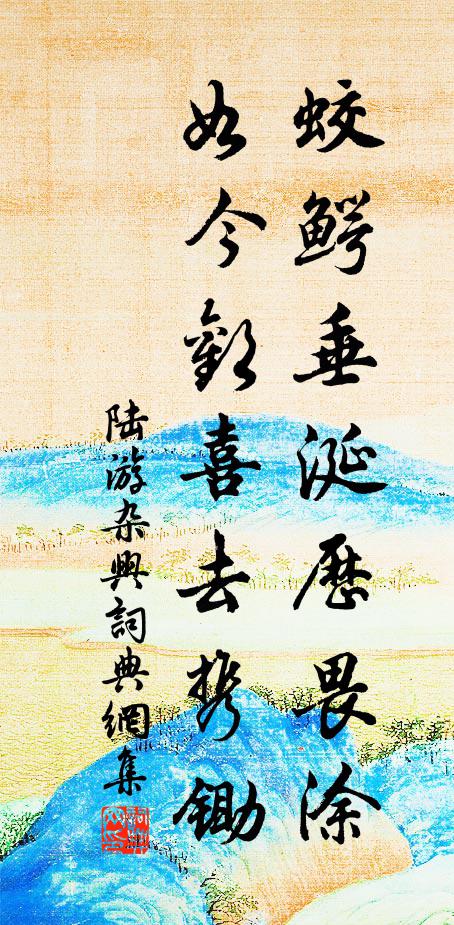 蛟鰐垂涎歷畏涂
如今歡喜去携鋤
陆游杂興詞典網集